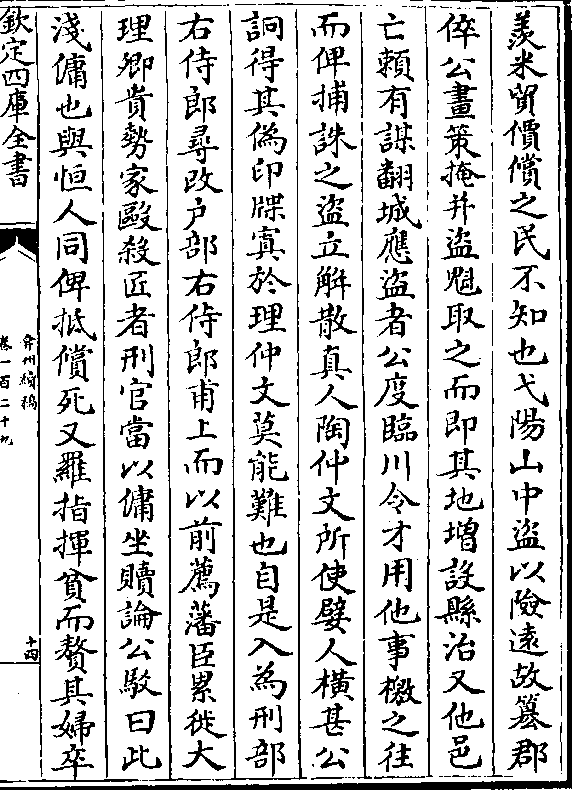 羡米貿價償之民不知也弋陽山中盜以險遠故簒郡
倅公畫策掩幷盜魁取之而即其地增設縣治又他邑
亡賴有謀翻城應盜者公度臨川令才用他事檄之往
而俾捕誅之盜立解散真人陶仲文所使嬖人橫甚公
詗得其偽印牒寘於理仲文莫能難也自是入為刑部
右侍郎尋改户部右侍郎甫上而以前薦藩臣累徙大
理卿貴勢家毆殺匠者刑官當以傭坐贖論公駁曰此
淺傭也與恒人同俾抵償死又羅指揮貧而贅其婦卒
欽定四庫全書
弇州續稿
卷一百二十九
十四